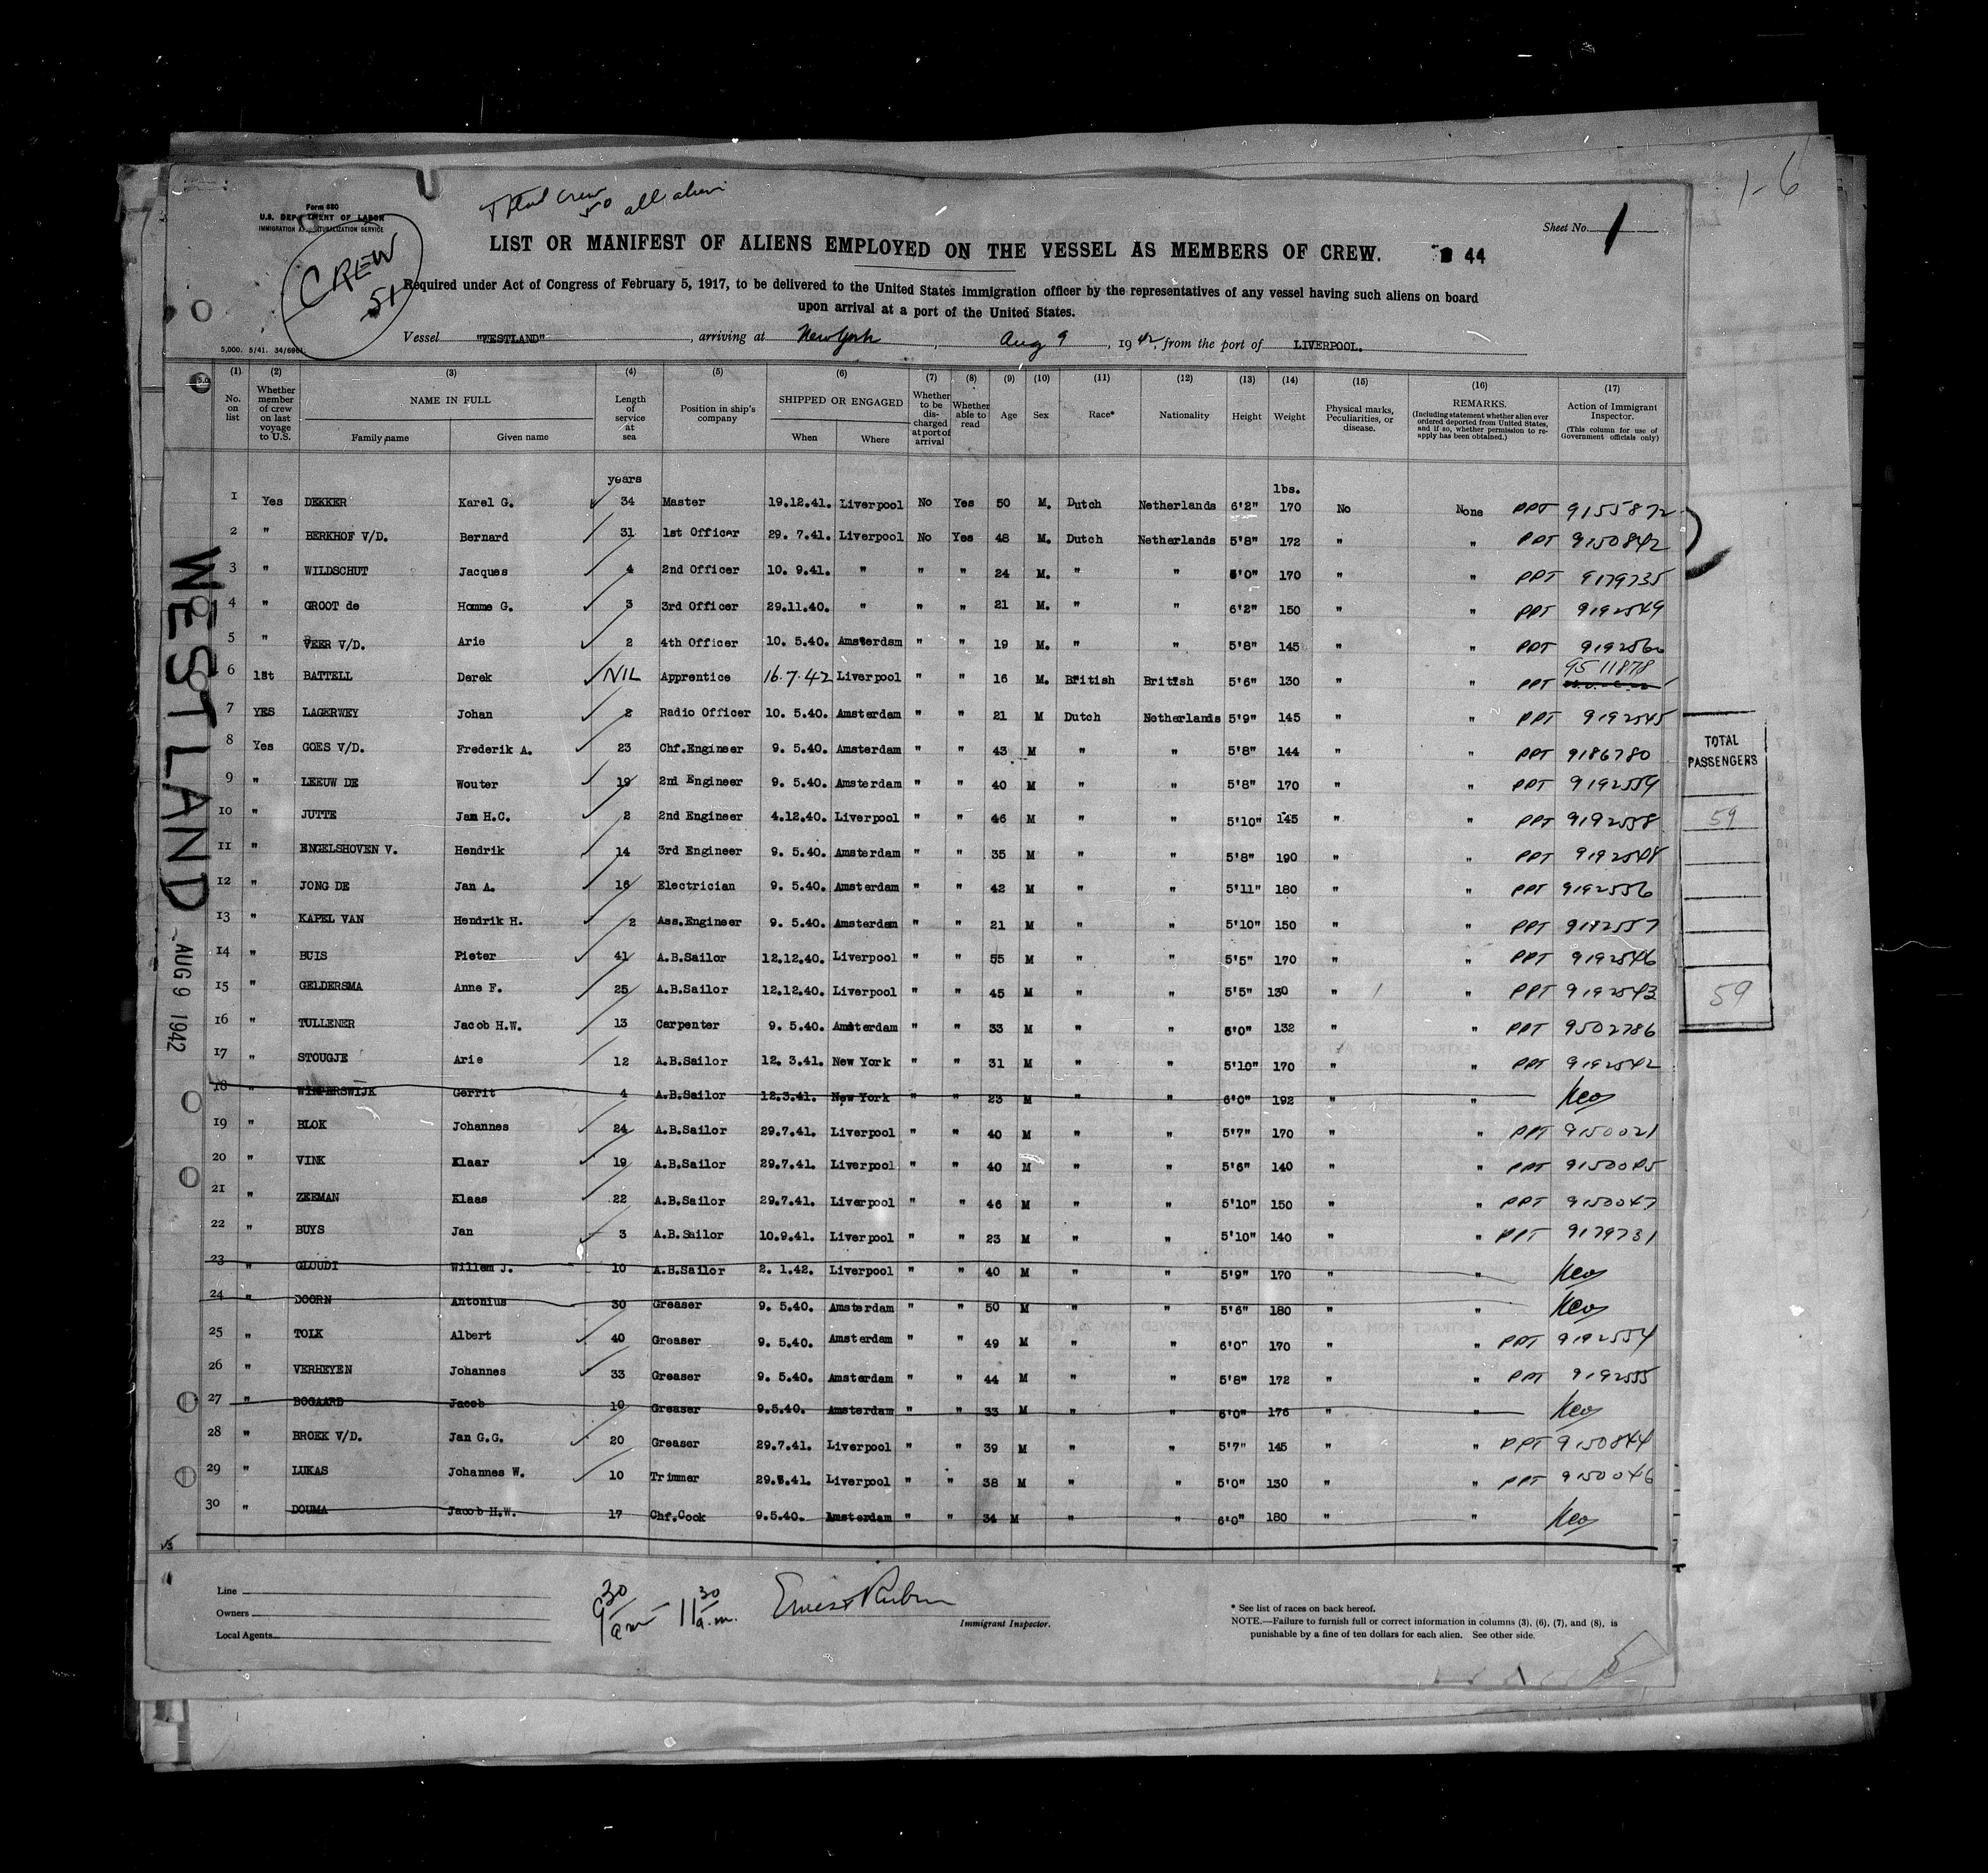 1-6
Form 680
U.S. DEPARTMENT OF LABOR
IMMIGRATION NATURALIZATION SERVICE
Total Crew 50 all alien
CREW
51
Sheet No. 1
LIST OR MANIFEST OF ALIENS EMPLOYED ON THE VESSEL AS MEMBERS OF CREW.
44
Required under Act of Congress of February 5, 1917, to be delivered to the United States immigration officer by the representatives of any vessel having such aliens on board
upon arrival at a port of the United States.
Vessel "WESTLAND", arriving at New York, Aug 9, 1942, from the port of LIVERPOOL.
5,000. 5/41.
(1) No. on list
(2) Whether member of crew on last voyage to U.S.
(3) NAME IN FULL Family name Given name
(4) Length of service at sea
(5) Position in ship's company
(6) SHIPPED OR ENGAGED When Where
(7) Whether to be discharged at port of arrival
(8) Whether able to read
(9) Age
(10) Sex
(11) Race*
(12) Nationality
(13) Height
(14) Weight
(15) Physical marks, Peculiarities, or disease.
(16) REMARKS. (Including statement whether alien ever ordered deported from United States, and if so, whether permission to re-apply has been obtained.)
(17) Action of Immigrant Inspector. (This column for use of Government officials only)
years lbs.
1 Yes DEKKER Karel G. 34 Master 19.12.41. Liverpool No Yes 50 M. Dutch Netherlands 6'2" 170 No None PPT 9155872
2 " BERKHOF V/D. Bernard 31 1st Officer 29. 7.41. Liverpool No Yes 48 M. Dutch Netherlands 5'8" 172 " " PPT 9150842
3 " WILDSCHUT Jacques 4 2nd Officer 10. 9.41. " " " 24 M. " " 6'0" 170 " " PPT 9179735
4 " GROOT de Homme G. 3 3rd Officer 29.11.40. " " " 21 M. " " 6'2" 150 " " PPT 9192549
5 " VEER V/D. Arie 2 4th Officer 10. 5.40. Amsterdam " " 19 M. " " 5'8" 145 " " PPT 9192560
6 1st BATTELL Derek NIL Apprentice 16.7.42 Liverpool " " 16 M. British British 5'6" 130 " " PPT 9511878
7 YES LAGERWEY Johan 2 Radio Officer 10. 5.40. Amsterdam " " 21 M Dutch Netherlands 5'9" 145 " " PPT 9192545
8 Yes GOES V/D. Frederik A. 23 Chf.Engineer 9. 5.40. Amsterdam " " 43 M " " 5'8" 144 " " PPT 9186780
9 " LEEUW DE Wouter 19 2nd Engineer 9. 5.40. Amsterdam " " 40 M " " 5'8" 170 " " PPT 9192559
10 " JUTTE Jam H.C. 2 2nd Engineer 4.12.40. Liverpool " " 46 M " " 5'10" 145 " " PPT 9192558
11 " ENGELSHOVEN V. Hendrik 14 3rd Engineer 9. 5.40. Amsterdam " " 35 M " " 5'8" 190 " " PPT 9192548
12 " JONG DE Jan A. 16 Electrician 9. 5.40. Amsterdam " " 42 M " " 5'11" 180 " " PPT 9192556
13 " KAPEL VAN Hendrik H. 2 Ass.Engineer 9. 5.40. Amsterdam " " 21 M " " 5'10" 150 " " PPT 9192557
14 " BUIS Pieter 41 A.B.Sailor 12.12.40. Liverpool " " 55 M " " 5'5" 170 " " PPT 9192546
15 " GELDERSMA Anne F. 25 A.B.Sailor 12.12.40. Liverpool " " 45 M " " 5'5" 130 " " PPT 9192543
16 " TULLENER Jacob H.W. 13 Carpenter 9. 5.40. Amsterdam " " 33 M " " 6'0" 132 " " PPT 9502786
17 " STOUGJE Arie 12 A.B.Sailor 12. 3.41. New York " " 31 M " " 5'10" 170 " " PPT 9192542
18 " Gerrit 4 A.B.Sailor 12.3.41. New York " " 23 M " " 6'0" 192 " "
19 " BLOK Johannes 24 A.B.Sailor 29.7.41. Liverpool " " 40 M " " 5'7" 170 " " PPT 9150021
20 " VINK Klaar 19 A.B.Sailor 29.7.41. Liverpool " " 40 M " " 5'6" 140 " " PPT 9150045
21 " ZEEMAN Klaas 22 A.B.Sailor 29.7.41. Liverpool " " 46 M " " 5'10" 150 " " PPT 9150047
22 " BUYS Jan 3 A.B.Sailor 10.9.41. Liverpool " " 23 M " " 5'10" 140 " " PPT 9179731
23 " GLOUDI Willem J. 10 A.B.Sailor 2. 1.42. Liverpool " " 40 M " " 5'9" 170 " "
24 " DOORN Antonius 30 Greaser 9. 5.40. Amsterdam " " 50 M " " 5'6" 180 " "
25 " TOLK Albert 40 Greaser 9. 5.40. Amsterdam " " 49 M " " 6'0" 170 " " PPT 9192554
26 " VERHEYEN Johannes 33 Greaser 9. 5.40. Amsterdam " " 44 M " " 5'8" 172 " " PPT 9192555
27 " BOGAARD Jacob 10 Greaser 9.5.40. Amsterdam " " 33 M " " 6'0" 176 " "
28 " BROEK V/D. Jan G.G. 20 Greaser 29.7.41. Liverpool " " 39 M " " 5'7" 145 " " PPT 9150844
29 " LUKAS Johannes W. 10 Trimmer 29.8.41. Liverpool " " 38 M " " 5'0" 130 " " PPT 9150046
30 " DOUMA Jacob H.W. 17 Chf.Cook 9.5.40. Amsterdam " " 34 M " " 6'0" 180 " "
WESTLAND
AUG 9 1942
TOTAL
PASSENGERS
59
59
Line
Owners
Local Agents
9 30 am - 11 30 a.m.
Immigrant Inspector.
* See list of races on back hereof.
NOTE.—Failure to furnish full or correct information in columns (3), (6), (7), and (8), is
punishable by a fine of ten dollars for each alien. See other side.